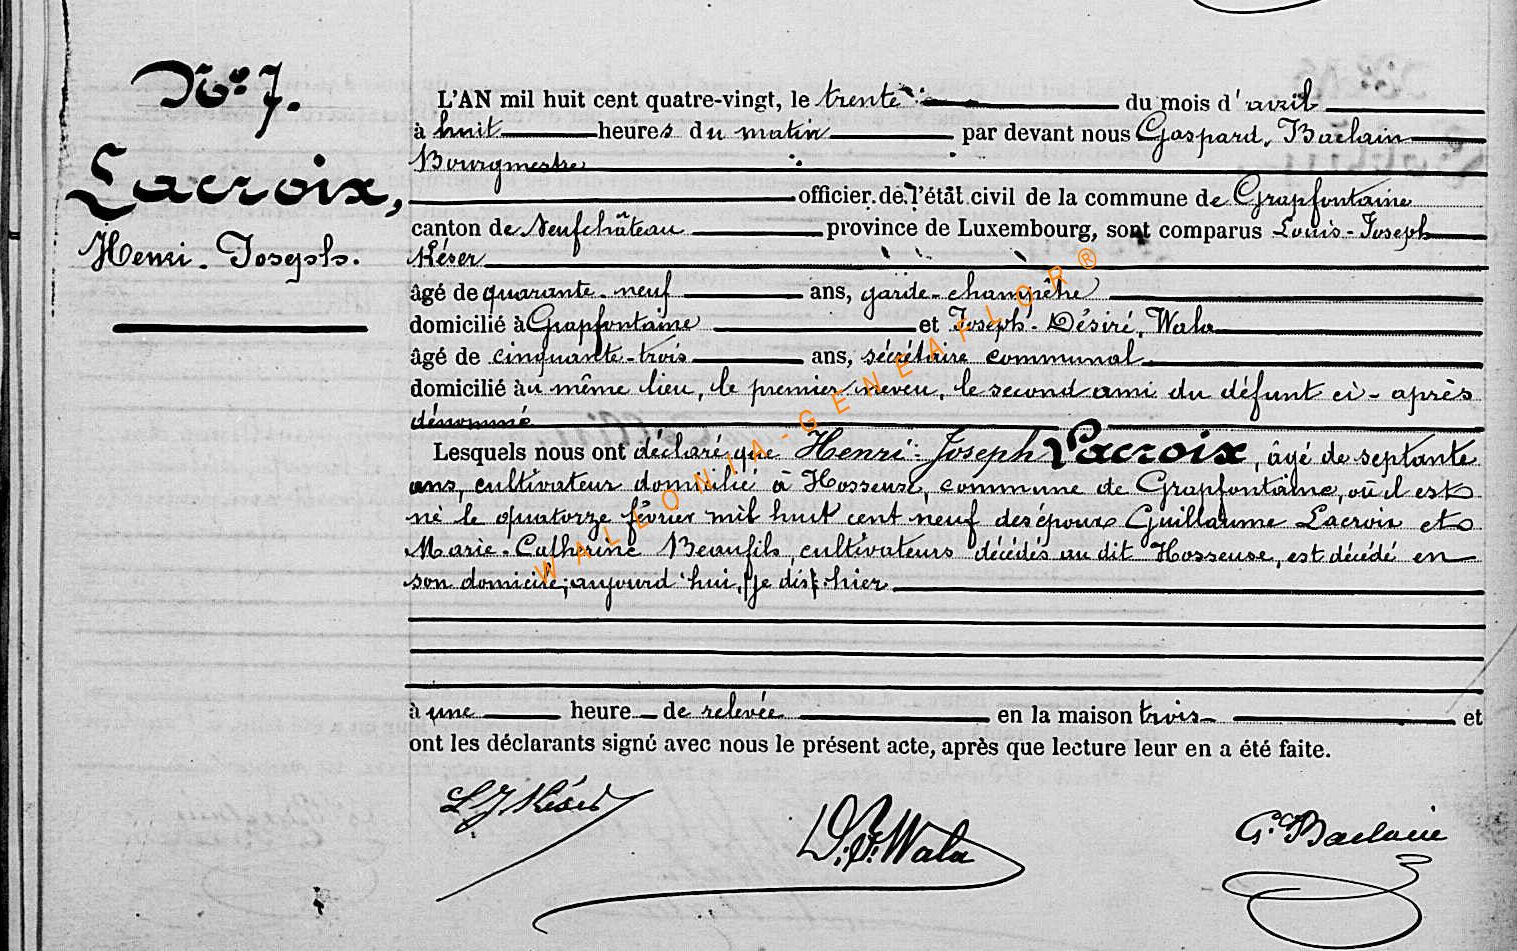 No. 7.
Lacroix,
Henri-Joseph.
L'AN mil huit cent quatre-vingt, le trente du mois d'avril
à huit heures du matin par devant nous Gaspard, Baclain
Bourgmestre
officier de l'état civil de la commune de Grapfontaine
canton de Neufchâteau province de Luxembourg, sont comparus Louis-Joseph
Késer
âgé de quarante-neuf ans, garde-champêtre
domicilié à Grapfontaine et Joseph-Désiré, Wala
âgé de cinquante-trois ans, sécrétaire communal
domicilié au même lieu, le premier neveu, le second ami du défunt ci-après
dénommé
Lesquels nous ont déclaré que Henri-Joseph Lacroix, âgé de septante
ans, cultivateur domicilié à Hosseuse, commune de Grapfontaine, où il est
né le quatorze février mil huit cent neuf des époux Guillaume Lacroix et
Marie-Catherine Beaufils, cultivateurs décédés au dit Hosseuse, est décédé en
son domicile, aujourd'hui, je dis hier
à une heure de relevée en la maison trois et
ont les déclarants signé avec nous le présent acte, après que lecture leur en a été faite.
L J Késer
D. J. Wala
G. Baclain
WALLONIA-GENEAFLOR®